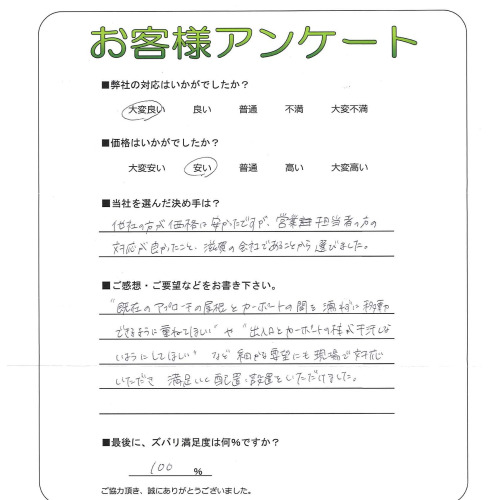 お客様アンケート
■弊社の対応はいかがでしたか？
大変良い 良い 普通 不満 大変不満
■価格はいかがでしたか？
大変安い 安い 普通 高い 大変高い
■当社を選んだ決め手は？
他社の方が価格は安かったですが、営業担当者の方の
対応が良かったこと、滋賀の会社であることから選びました。
■ご感想・ご要望などをお書き下さい。
"既存のアプローチの屋根とカーポートの間を濡れずに移動
できるように重ねてほしい"や"出入口とカーポートの柱が干渉しな
いようにしてほしい"など細かな要望にも現場で対応
いただき 満足いく配置・設置をいただけました。
■最後に、ズバリ満足度は何％ですか？
100 ％
ご協力頂き、誠にありがとうございました。